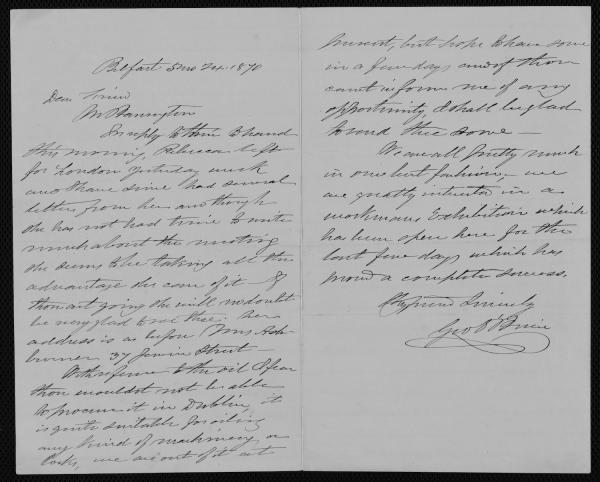 Belfast 5mo 24. 1870
Dear Friend
W Barrington
In reply to thine to hand
this morning, Rebecca left
for London yesterday week
and I have since had several
letters from her and though
she has not had time to write
much about the meeting
she seems to be taking all the
advantage she can of it If
thou art going she will no doubt
be very glad to see thee. her
address is as before
37 Street
With reference to the oil I fear
thou wouldst not be able
to procure it in Dublin, it
is quite suitable for oiling
any kind of machinery or
locks, we are out of it at
present, but hope to have some
in a few days and if thou
canst inform me of any
opportunity, I shall be glad
to send thee some —
We are all pretty much
in our best fashion, we
are greatly interested in a
workmans Exhibition which
has been open here for the
last few days which has
proved a complete success.
Thy friend Sincerely
Geo